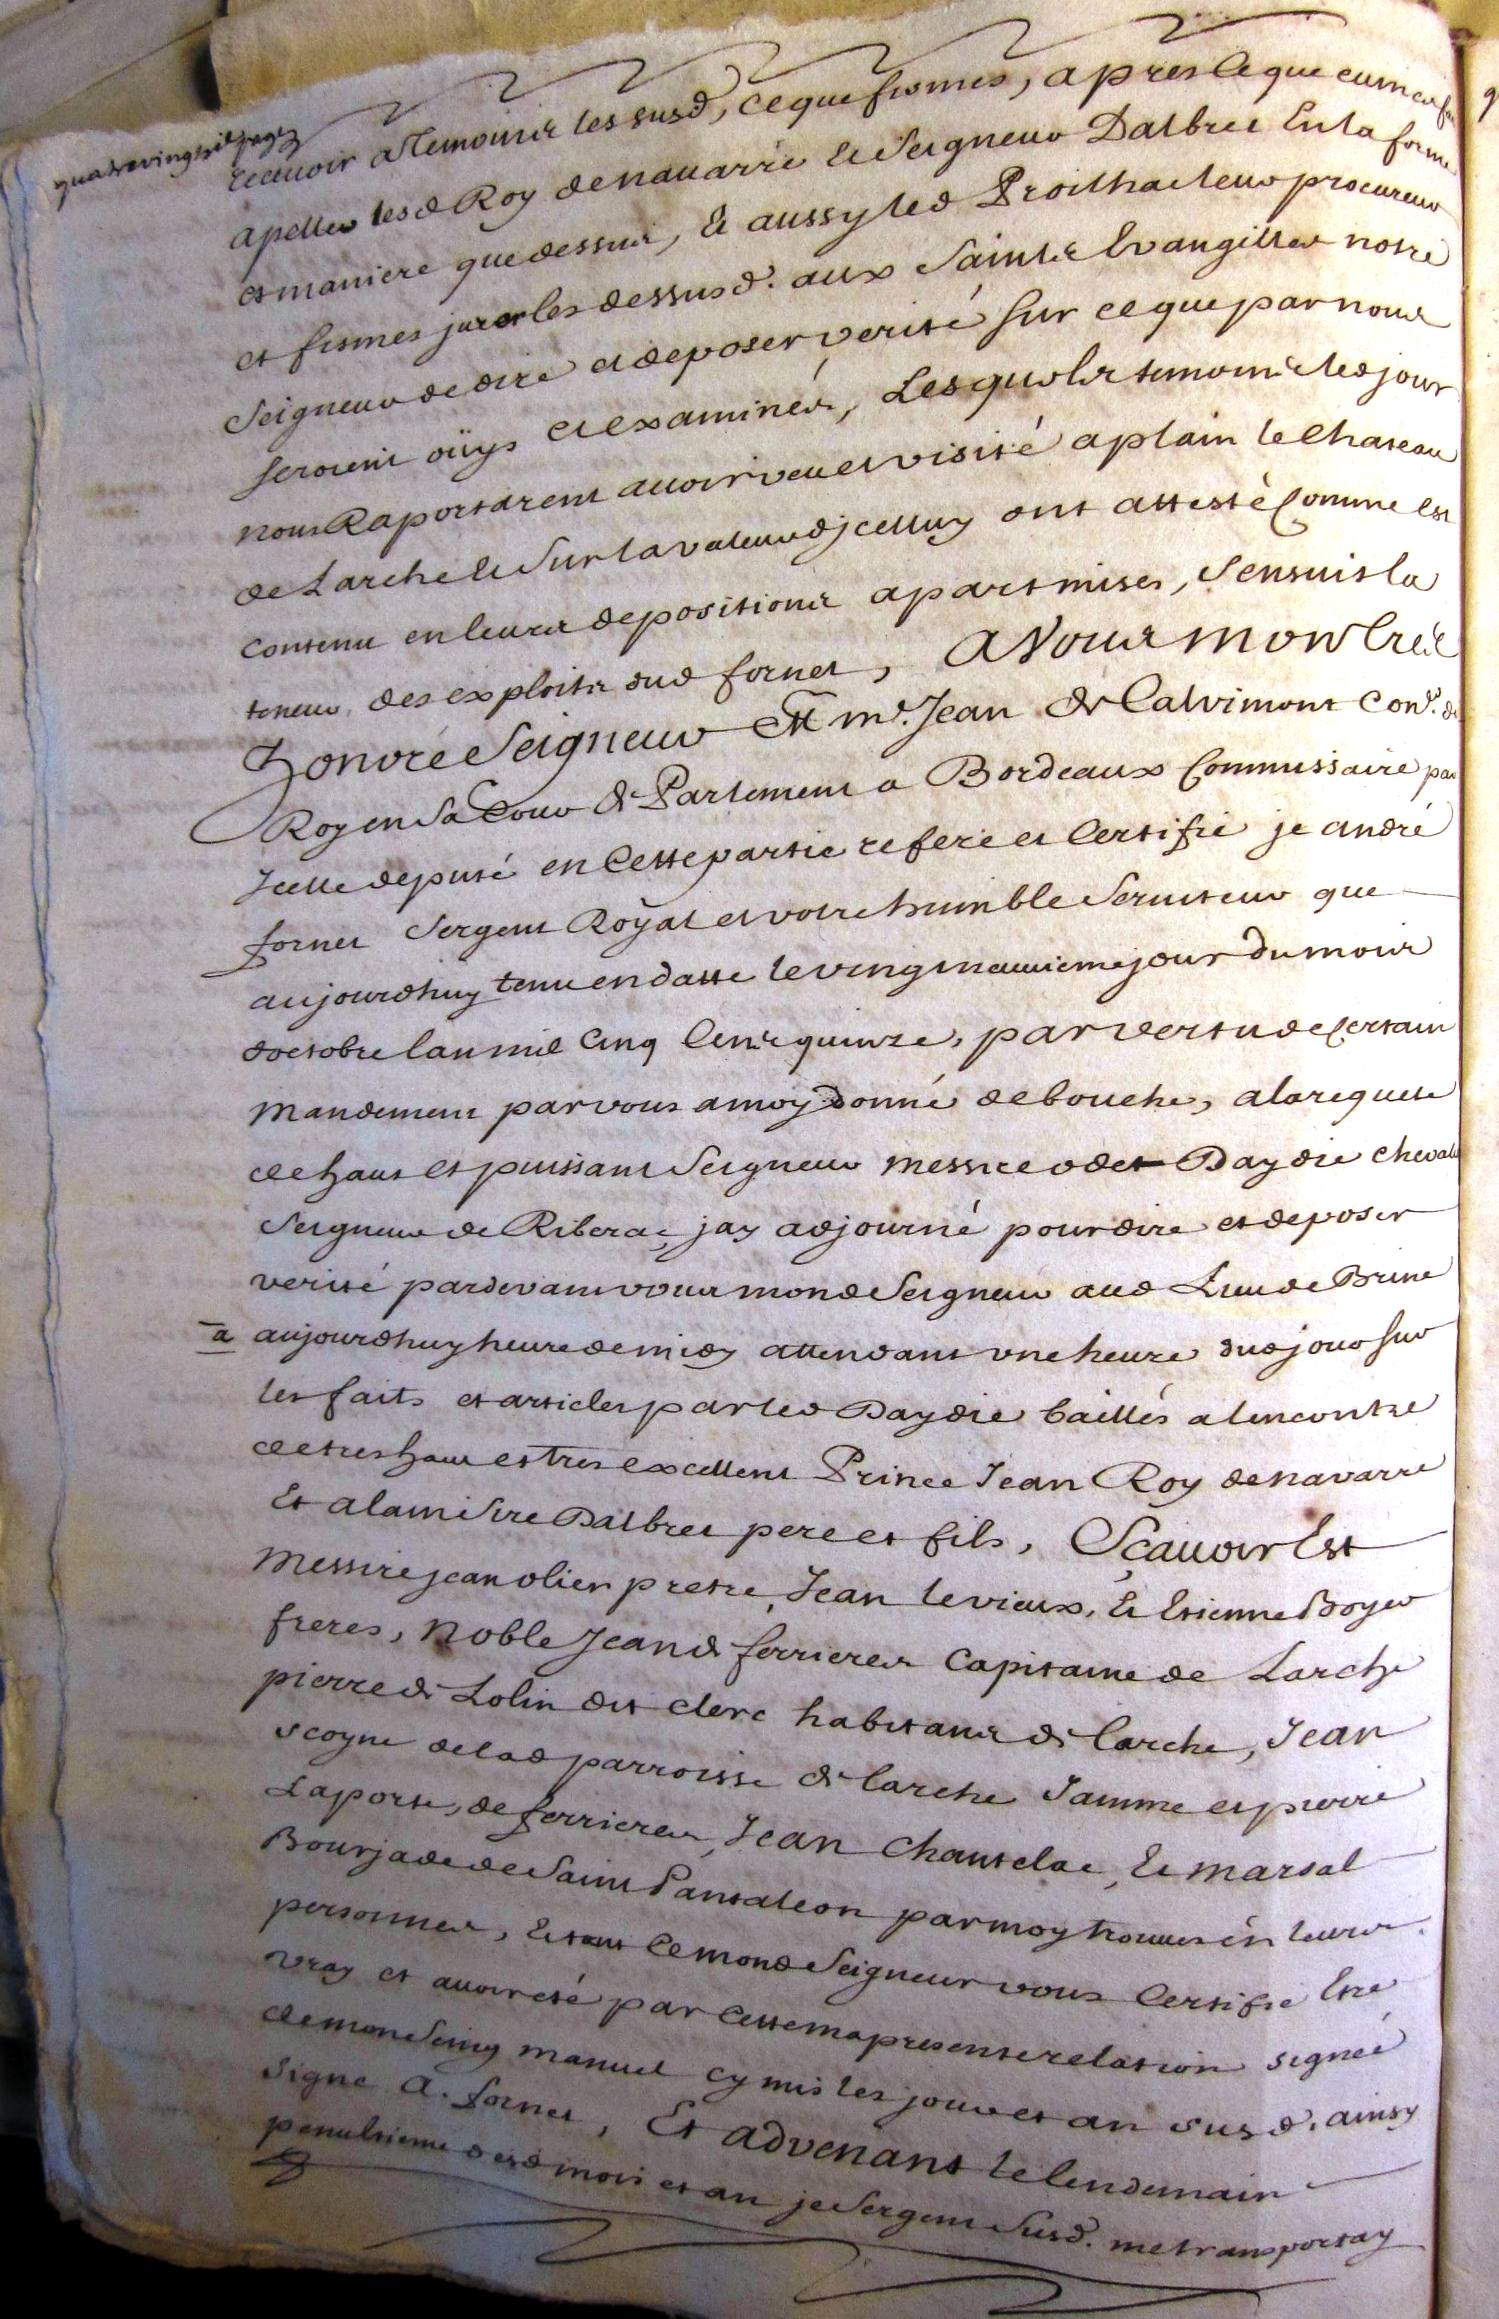 quatrevingtsix pages
recevoir a Temoins les susd, ce que fismes, apres ce que eumes fait
apeller lesd Roy de navarre et Seigneur Dalbret En la forme
et maniere que dessus, Et aussy led Proithacteur procureur
et fismes jurer les dessusd. aux Saints Evangilles notre
Seigneur de dire et deposer verité sur ce que par nous
seroient oüys et examinés, Lesquels temoins led jour
nous Raportarent avoir veu et visité a plain le Chateau
de Larche et sur la valeur djcelluy ont attesté Comme Est
contenu en leurs depositions apart mises, Sensuit la
teneur des exploits dud fornet, A Vous mon tres
honoré Seigneur Mr me. Jean de Calvimont Conr. du
Roy en Sa Cour de Parlement a Bordeaux Commissaire par
Jcelle deputé en Cette partie refere et Certifie je andré
fornet Sergent Royal et votre humble Serviteur que
aujourdhuy tenu en datte le vingt neuvieme jour du mois
doctobre lan mil Cinq Cents quinze, par vertu de Certain
Mandement par vous a moy donné de bouche, a la requette
de haut et puissant Seigneur messire odet Daydie cheval
Seigneur de Riberac jay adjourné pour dire et deposer
verité pardevant vous mond Seigneur aud Lieu de Brine
a aujourdhuy heure de midy attendant une heure dud jour sur
les faits et articles par led Daydie baillés a lencontre
de tres haut et tres excellent Prince Jean Roy de navarre
Et alain Sire Dalbret pere et fils, Scavoir Est
Messire jean olier pretre, Jean le vieux, Et Etienne Boyer
freres, Noble Jean de ferrieres Capitaine de Larche
pierre de Lolin dit clerc habitans de larche, Jean
scoyne de lad parroisse de larche Jamme et pierre
Laporte, de ferrieres, Jean Chantelac, Et marsal
Bourjade de Saint Pantaleon par moy trouvés en leurs
personnes, Et tout Ce mond Seigneur vous Certifie Etre
vray et avoir eté par Cette ma presente relation signée
de mon Seing manuel cy mis les jour et an susd. ainsy
Signé A. fornet, Et advenant le lendemain
penultieme desd mois et an je Sergent Susd. me transportay